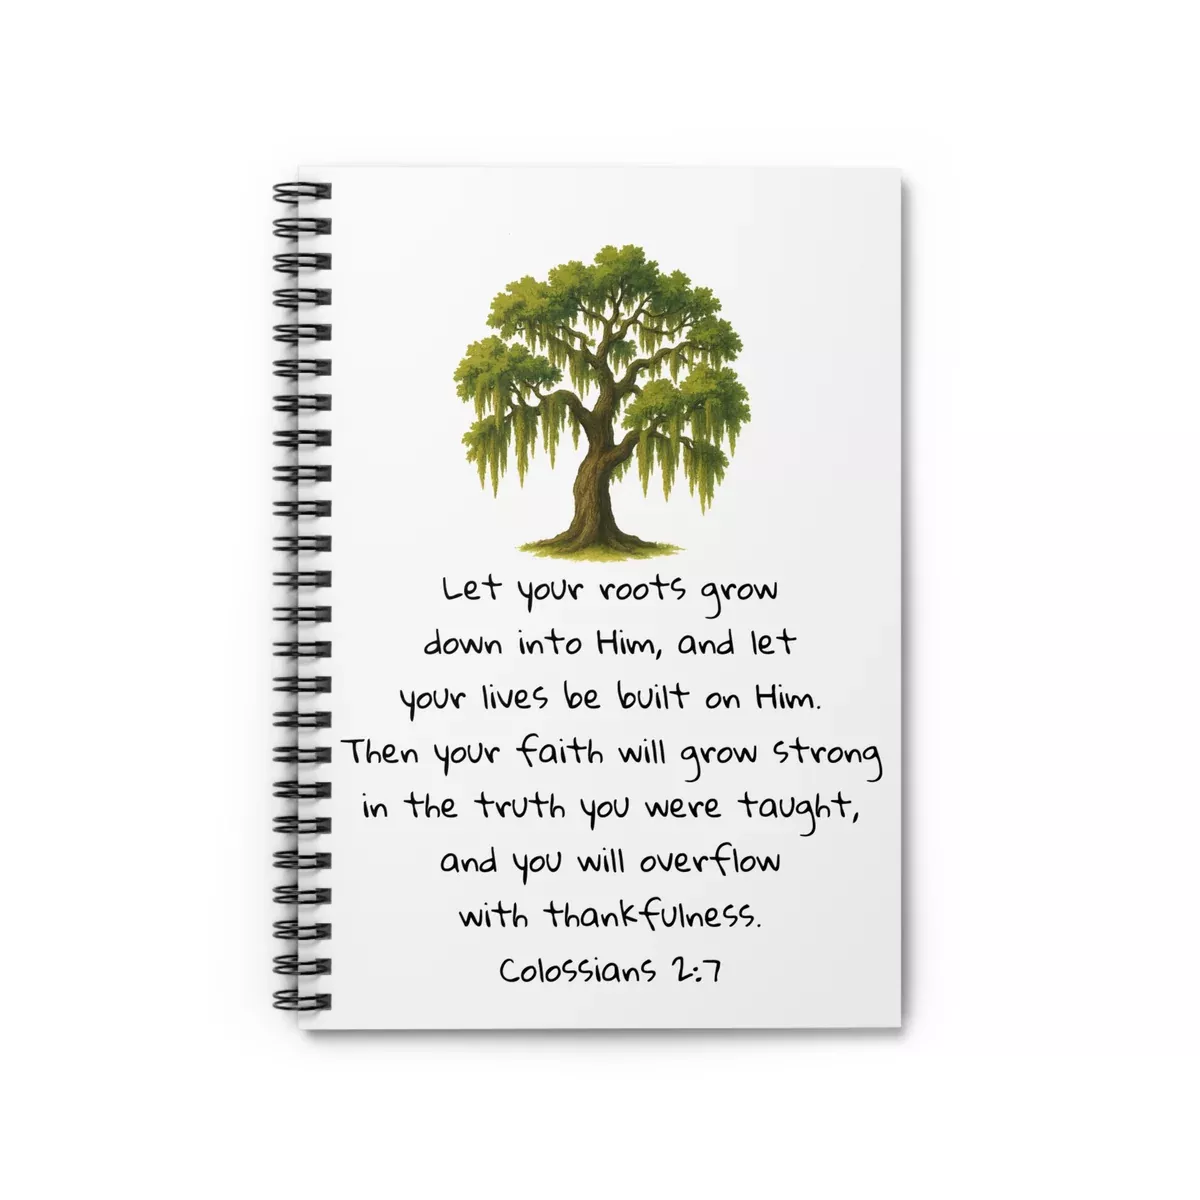 Let your roots grow
down into Him, and let
your lives be built on Him.
Then your faith will grow strong
in the truth you were taught,
and you will overflow
with thankfulness.
Colossians 2:7